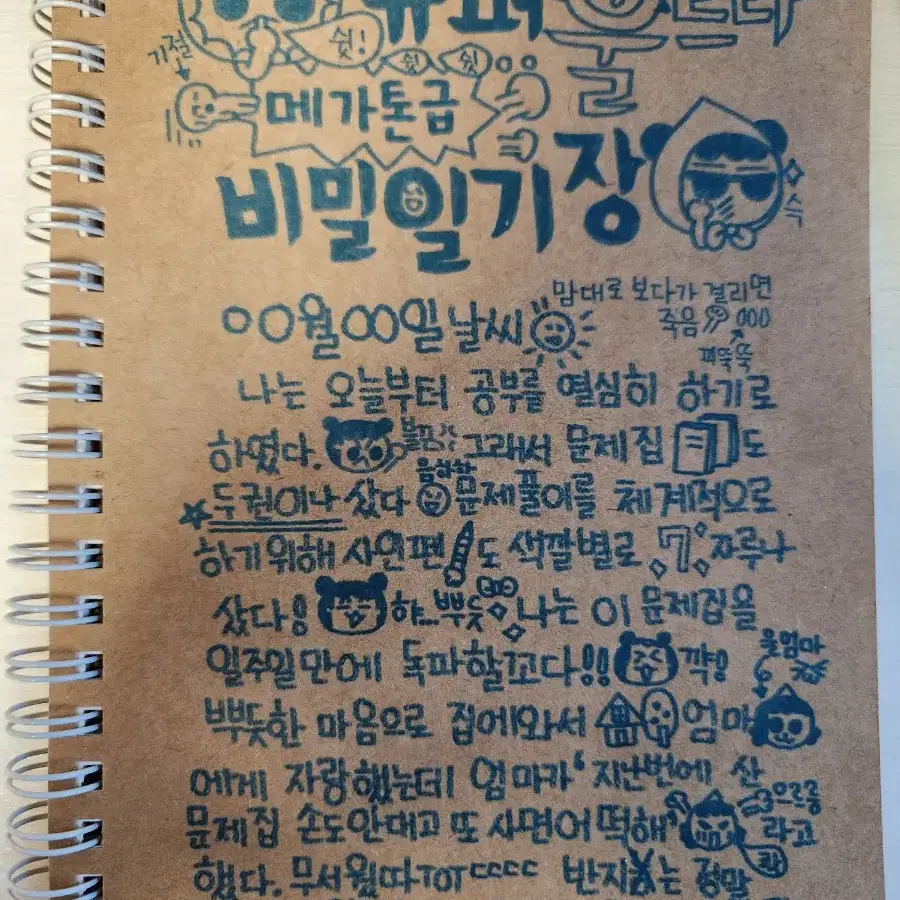 슈퍼 울트라
쉿!
쉿 쉿
기절
메가톤급
비밀일기장
슥
맘대로 보다가 걸리면
죽음 000
삐뚝뚝
00월00일 날씨
나는 오늘부터 공부를 열심히 하기로
하였다. 불끈 그래서 문제집 도
음하하
두권이나 샀다 문제풀이를 체계적으로
하기위해 사인펜 도 색깔별로 7 자루나
샀다! 햐.. 뿌듯 나는 이 문제집을
일주일만에 독파할꼬다!! 꺅!
울엄마
뿌듯한 마음으로 집에와서 엄마
에게 자랑했는데 엄마가 '지난번에 산
문제집 손도안대고 또 사면어떡해' 으르릉 라고
했다. 무서웠따TOT 반지 는 정말